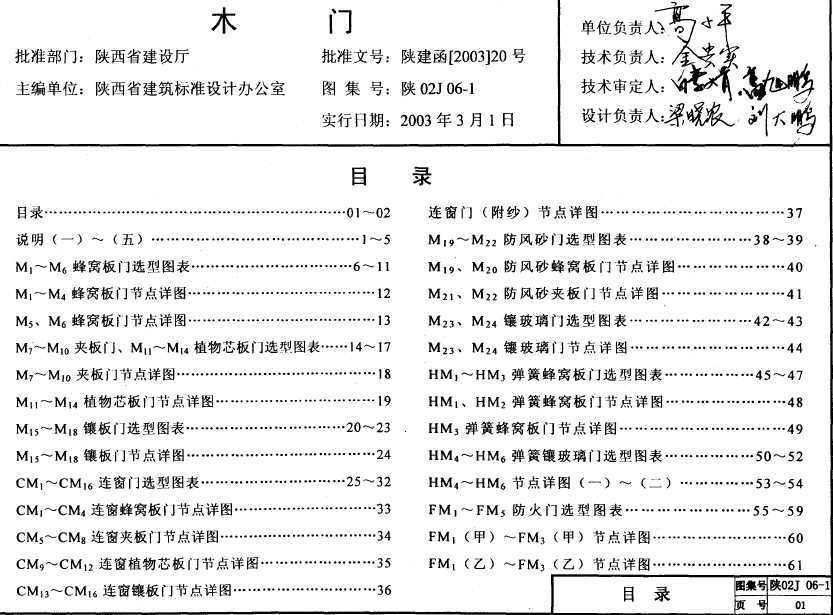 木 门
批准部门：陕西省建设厅 批准文号：陕建函[2003]20 号
主编单位：陕西省建筑标准设计办公室 图 集 号：陕 02J 06-1
实行日期：2003 年 3 月 1 日
单位负责人：
技术负责人：
技术审定人：
设计负责人：梁晓农 刘大鹏
目 录
目录……………………………………01～02
说明（一）～（五）……………………………1～5
M₁～M₆ 蜂窝板门选型图表……………………6～11
M₁～M₄ 蜂窝板门节点详图……………………12
M₅、M₆ 蜂窝板门节点详图……………………13
M₇～M₁₀ 夹板门、M₁₁～M₁₄ 植物芯板门选型图表……14～17
M₇～M₁₀ 夹板门节点详图……………………18
M₁₁～M₁₄ 植物芯板门节点详图……………………19
M₁₅～M₁₈ 镶板门选型图表……………………20～23
M₁₅～M₁₈ 镶板门节点详图……………………24
CM₁～CM₁₆ 连窗门选型图表……………………25～32
CM₁～CM₄ 连窗蜂窝板门节点详图……………………33
CM₅～CM₈ 连窗夹板门节点详图……………………34
CM₉～CM₁₂ 连窗植物芯板门节点详图………………35
CM₁₃～CM₁₆ 连窗镶板门节点详图…………………36
连窗门（附纱）节点详图……………………………37
M₁₉～M₂₂ 防风砂门选型图表………………38～39
M₁₉、M₂₀ 防风砂蜂窝板门节点详图………………40
M₂₁、M₂₂ 防风砂夹板门节点详图…………………41
M₂₃、M₂₄ 镶玻璃门选型图表………………42～43
M₂₃、M₂₄ 镶玻璃门节点详图……………………44
HM₁～HM₃ 弹簧蜂窝板门选型图表……………45～47
HM₁、HM₂ 弹簧蜂窝板门节点详图………………48
HM₃ 弹簧蜂窝板门节点详图……………………49
HM₄～HM₆ 弹簧镶玻璃门选型图表……………50～52
HM₄～HM₆ 节点详图（一）～（二）……………53～54
FM₁～FM₅ 防火门选型图表………………55～59
FM₁（甲）～FM₃（甲）节点详图……………………60
FM₁（乙）～FM₃（乙）节点详图……………………61
目 录
图集号 陕02J 06-1
页 号 01